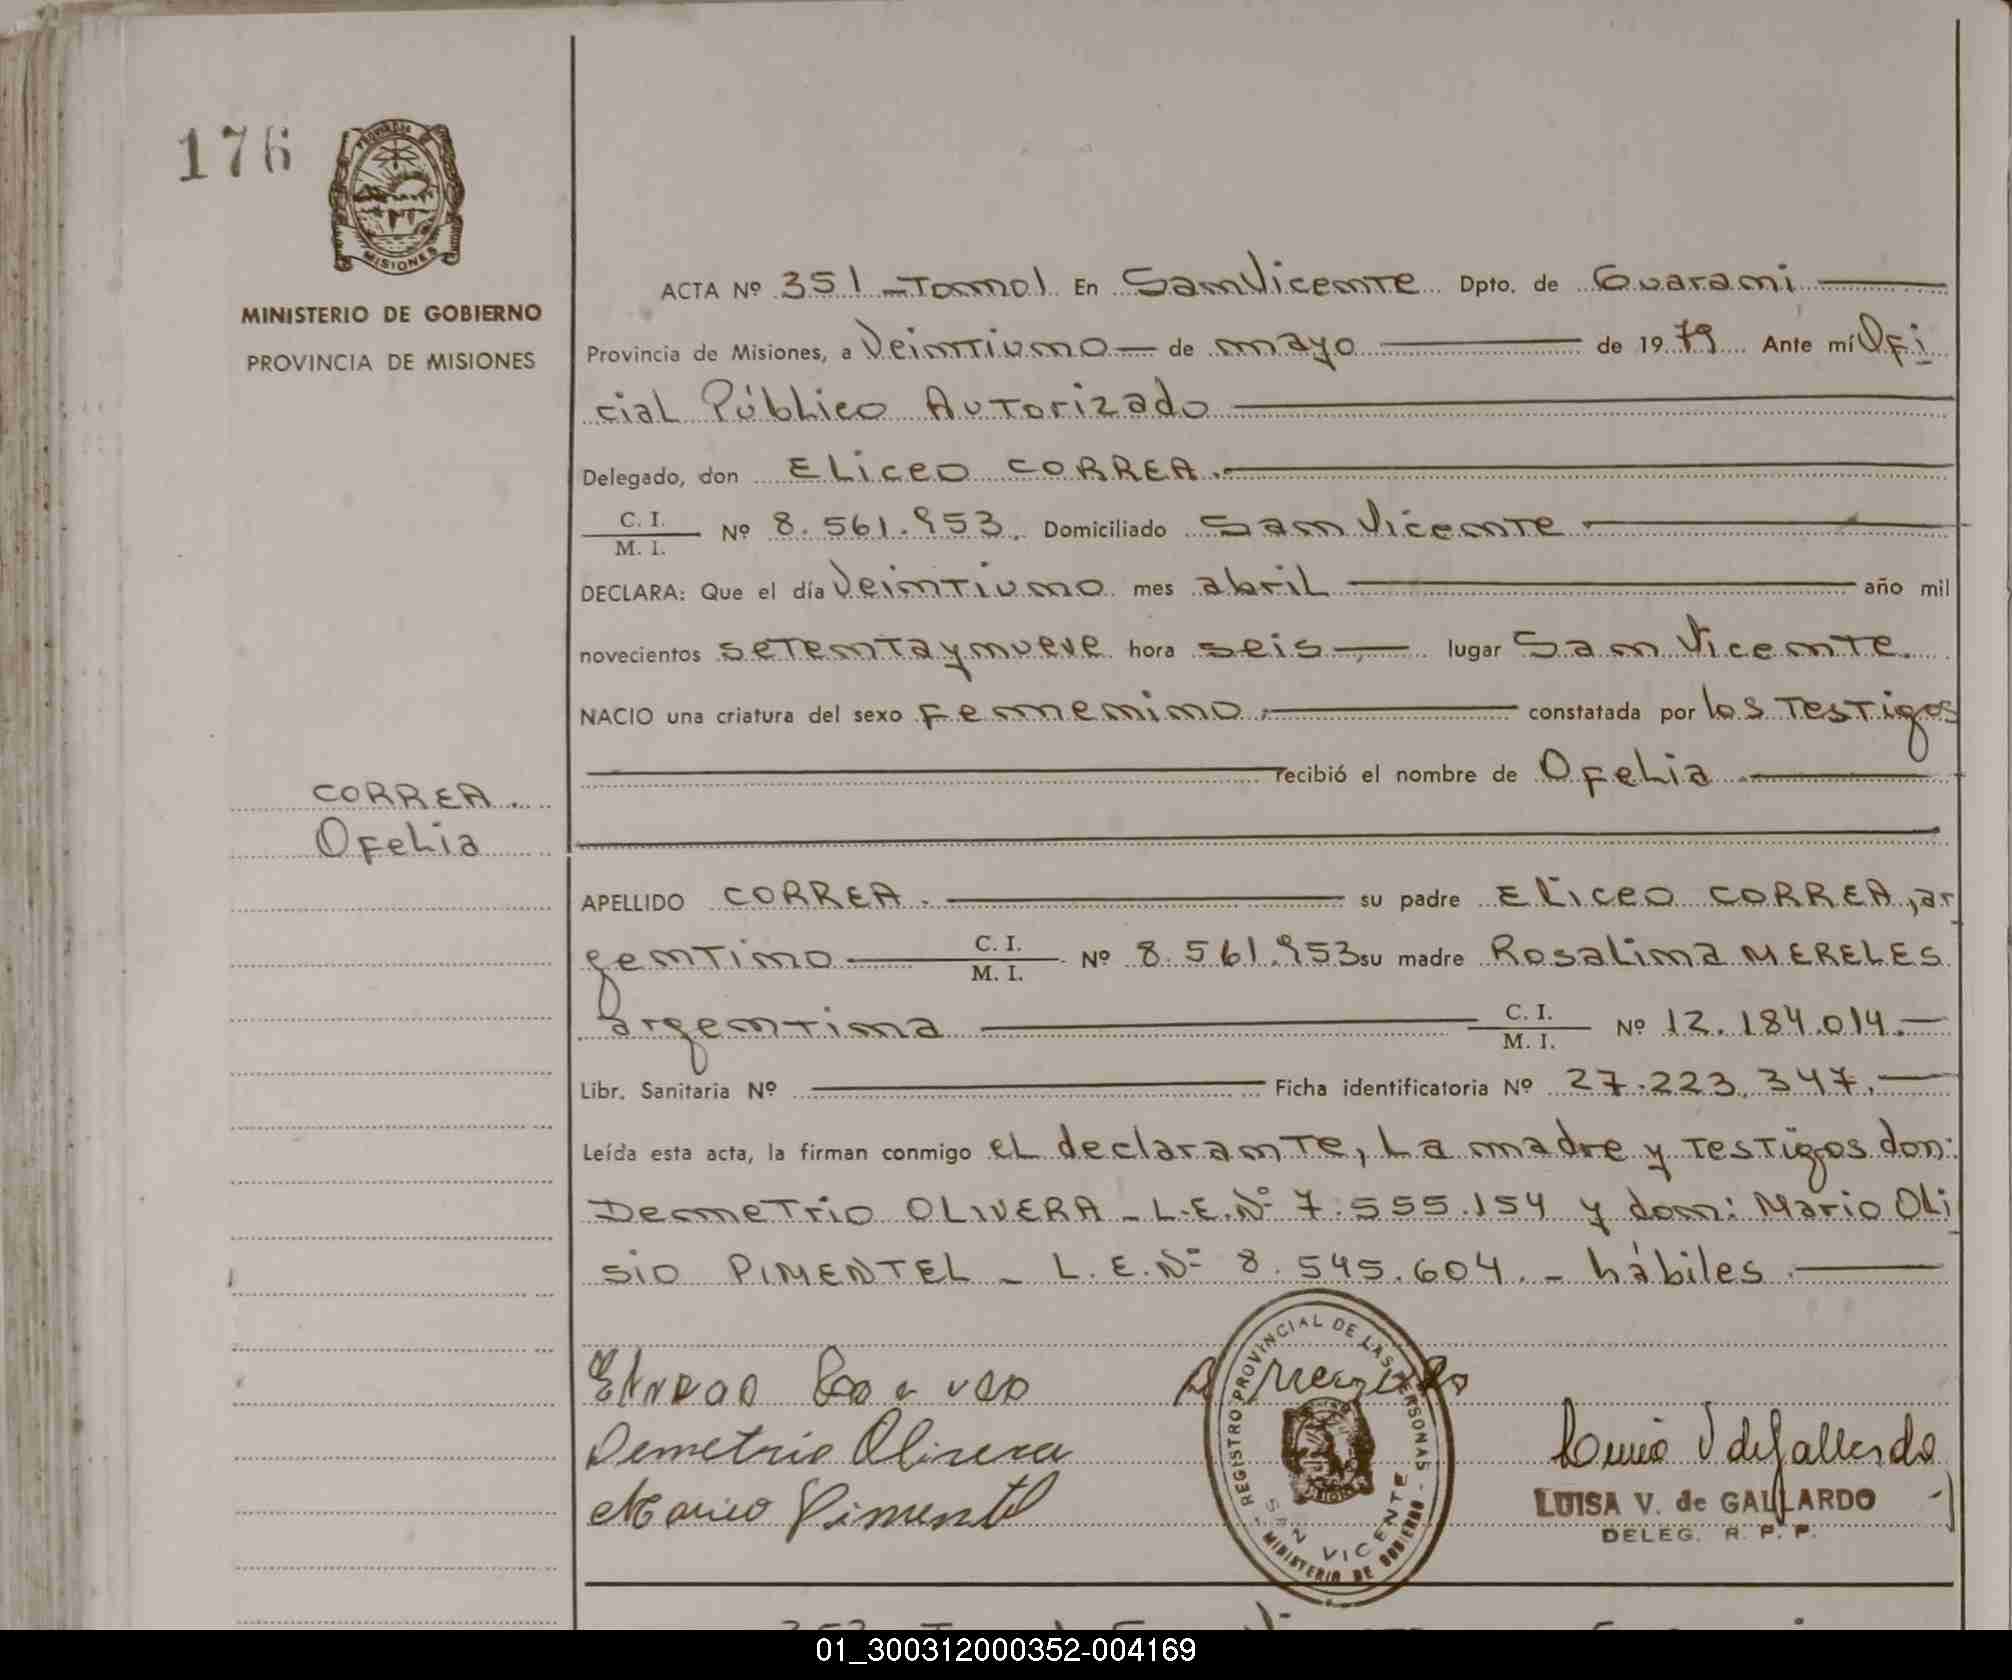 176
PROVINCIA
MISIONES
MINISTERIO DE GOBIERNO
PROVINCIA DE MISIONES
ACTA Nº 351 - Tomo I En San Vicente Dpto. de Guaraní
Provincia de Misiones, a Veintiuno de mayo de 1979 Ante mí Ofi
cial Público Autorizado
Delegado, don ELiceo CORREA.
C. I.
M. I. Nº 8.561.953. Domiciliado San Vicente
DECLARA: Que el día Veintiuno mes abril año mil
novecientos setenta y nueve hora seis lugar San Vicente.
NACIO una criatura del sexo femenino, constatada por los Testigos
recibió el nombre de Ofelia
CORREA.
Ofelia
APELLIDO CORREA. su padre Eliceo CORREA, ar
gentino C. I. M. I. Nº 8.561.953 su madre Rosalina MERELES
argentina C. I. M. I. Nº 12.184.014.
Libr. Sanitaria Nº Ficha identificatoria Nº 27.223.347.
Leída esta acta, la firman conmigo el declarante, La madre y Testigos don:
Demetrio OLIVERA - L.E.Nº 7.555.154 y don: Mario Oli
sio PIMENTEL - L.E.Nº 8.545.604. - hábiles
Demetrio Olivera
Mario Pimentel
REGISTRO PROVINCIAL DE LAS PERSONAS
SAN VICENTE
MINISTERIO DE GOBIERNO
Luisa V de Gallardo
LUISA V. de GALLARDO
DELEG. R. P. P.
01_300312000352-004169